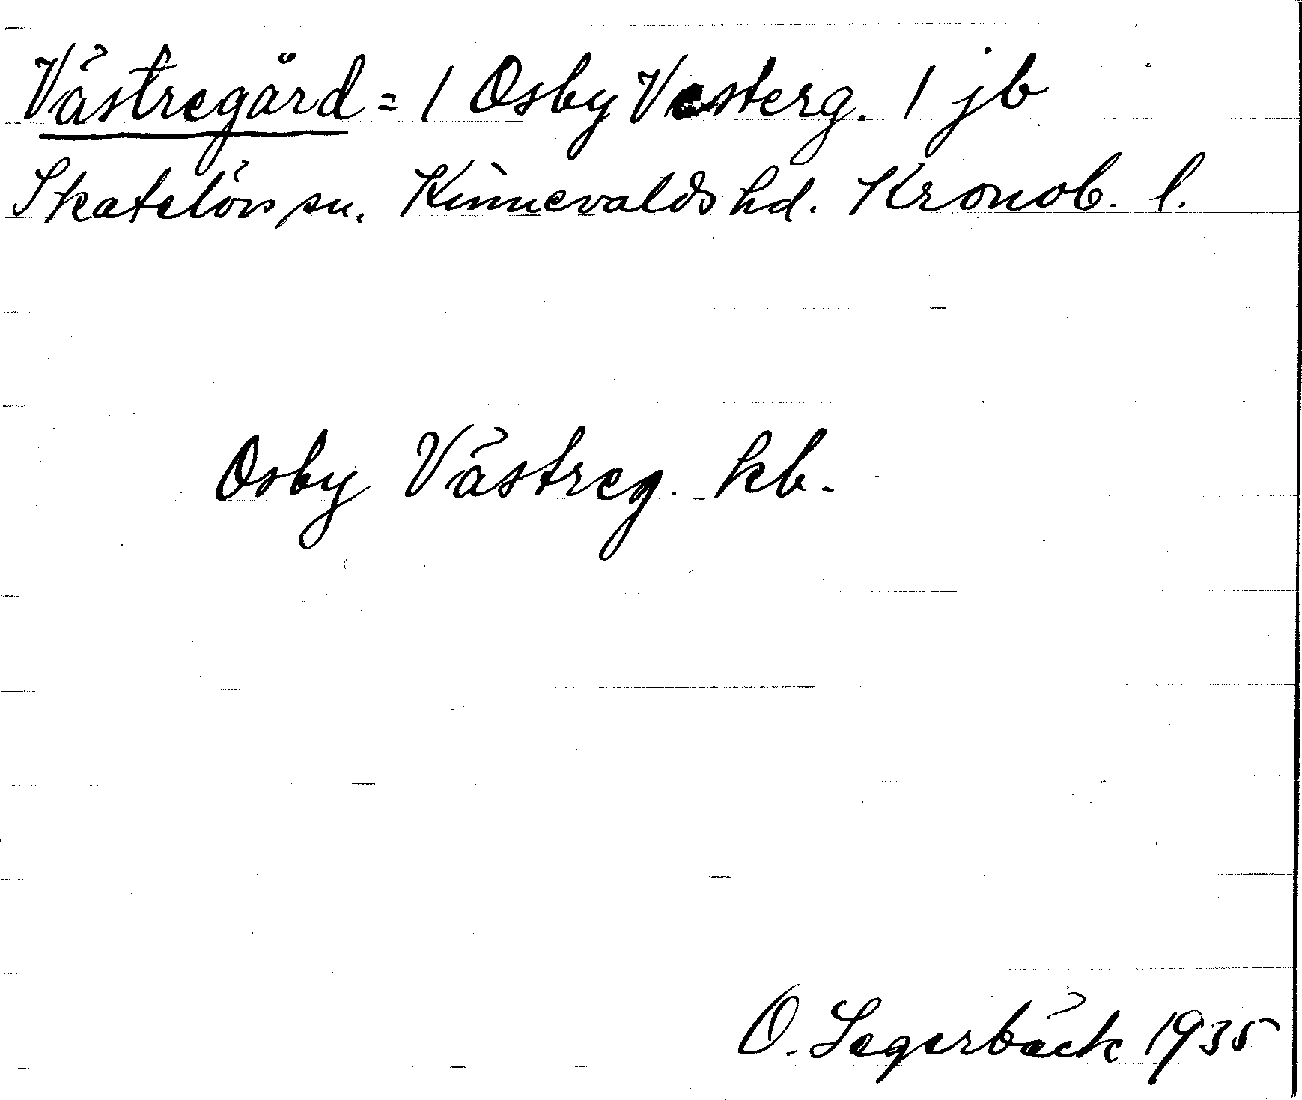 Västregård = 1 Osby Vesterg. 1 jb
Skatelövs sn. Kinnevalds hd. Kronob. l.
Osby Västreg. kb.
O. Segerbäck 1935